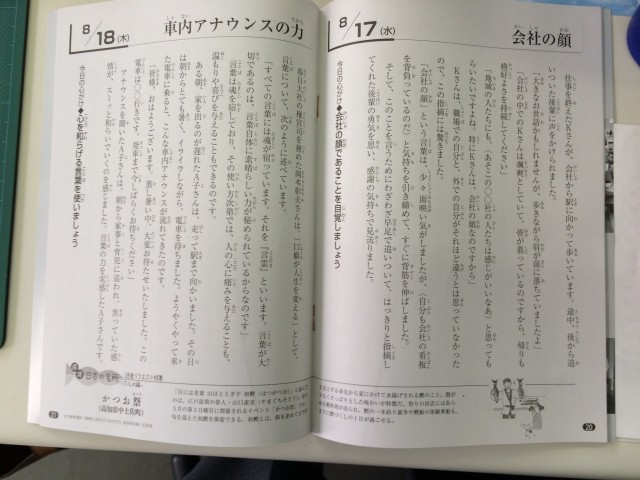 8/17(水)
会社の顔
仕事を終えたKさんが、会社から駅に向かって歩いています。途中、後から追
いついた後輩に声をかけられました。
「大きなお世話かもしれませんが、歩きながら肩が前に落ちていましたよ」
「会社の中でのKさんは颯爽としていて、皆が慕っているのですから、帰りも
格好よさを持続してください」
「地域の人たちにも、『あそこの〇〇社の人たちは感じがいいなあ』と思っても
らいたいですよね。特にKさんは、会社の顔なのですから」
Kさんは、職場での自分と、外での自分がそれほど違うとは思っていなかった
ので、この指摘には驚きました。
「会社の顔」という言葉は、少々面映い気がしましたが、「自分も会社の看板
を背負っているのだ」と気持ちを引き締めて、すぐに背筋を伸ばしました。
そして、このことを言うためにわざわざ早足で追いついて、はっきりと指摘し
てくれた後輩の勇気を思い、感謝の気持ちで見送りました。
今日の心がけ◆会社の顔であることを自覚しましょう
20
8/18(木)
車内アナウンスの力
春日大社の権宮司を務めた岡本彰夫さんは、「口癖が人生を変える」として、
言葉について、次のように述べています。
「すべての言葉には魂が宿っています。それを『言霊』といいます。言葉が大
切であるのは、言葉自体に素晴らしい力が秘められているからなのです」
言葉は魂を宿しており、その使い方次第では、人の心に痛みを与えることも、
温もりや喜びを与えることもできるのです。
ある朝、家を出るのが遅れたA子さんは、走って駅まで向かいました。その日
は朝からとても暑く、イライラしながら、電車を待ちました。ようやくやって来
た電車に乗ると、こんな車内アナウンスが流れてきたのです。
「皆様、おはようございます。蒸し暑い中、大変お待たせいたしました。この
電車は〇〇行きです。発車まで今しばらくお待ちください」
アナウンスを聞いたA子さんは、朝から家事と育児に追われ、焦っていた感
情が、スーッと和らいでいくのを感じました。言葉の力を実感したA子さんです。
今日の心がけ◆心を和らげる言葉を使いましょう
かつお祭
(高知県中土佐町)
21